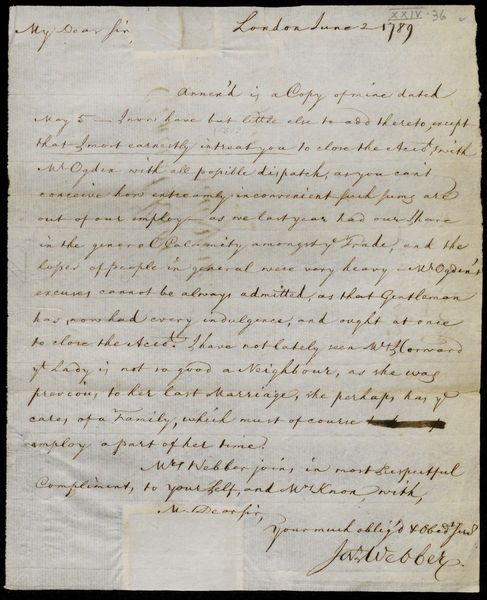 XXIV-36
My Dear Sir, London June 2 1789
Annex'd is a Copy of mine dated
May 5 – I now have but little else to add thereto, except
that I most earnestly intreat you to close the Acco.t with
Mr Ogden with all possible dispatch, as you can't
conceive how extreamly inconvenient such sums are
out of our employ – as we last year had our Share
in the general Calamity amongst ye Trade, and the
losses of people in general were very heavy – Mr Ogden's
excuses cannot be always admitted, as that Gentleman
has now had every indulgence, and ought at once
to close the Acco.t I have not lately seen Mrs
yt Lady is not so good a Neighbour, as she was
previous to her last Marriage, she perhaps has ye
cares of a Family, which must of course
employ a part of her time.
Mrs Webber joins in most Respectful
Compliment, to your Self, and Mrs Knox with,
My Dear Sir,
Your much oblig'd & Obedt Servt
Jas Webber